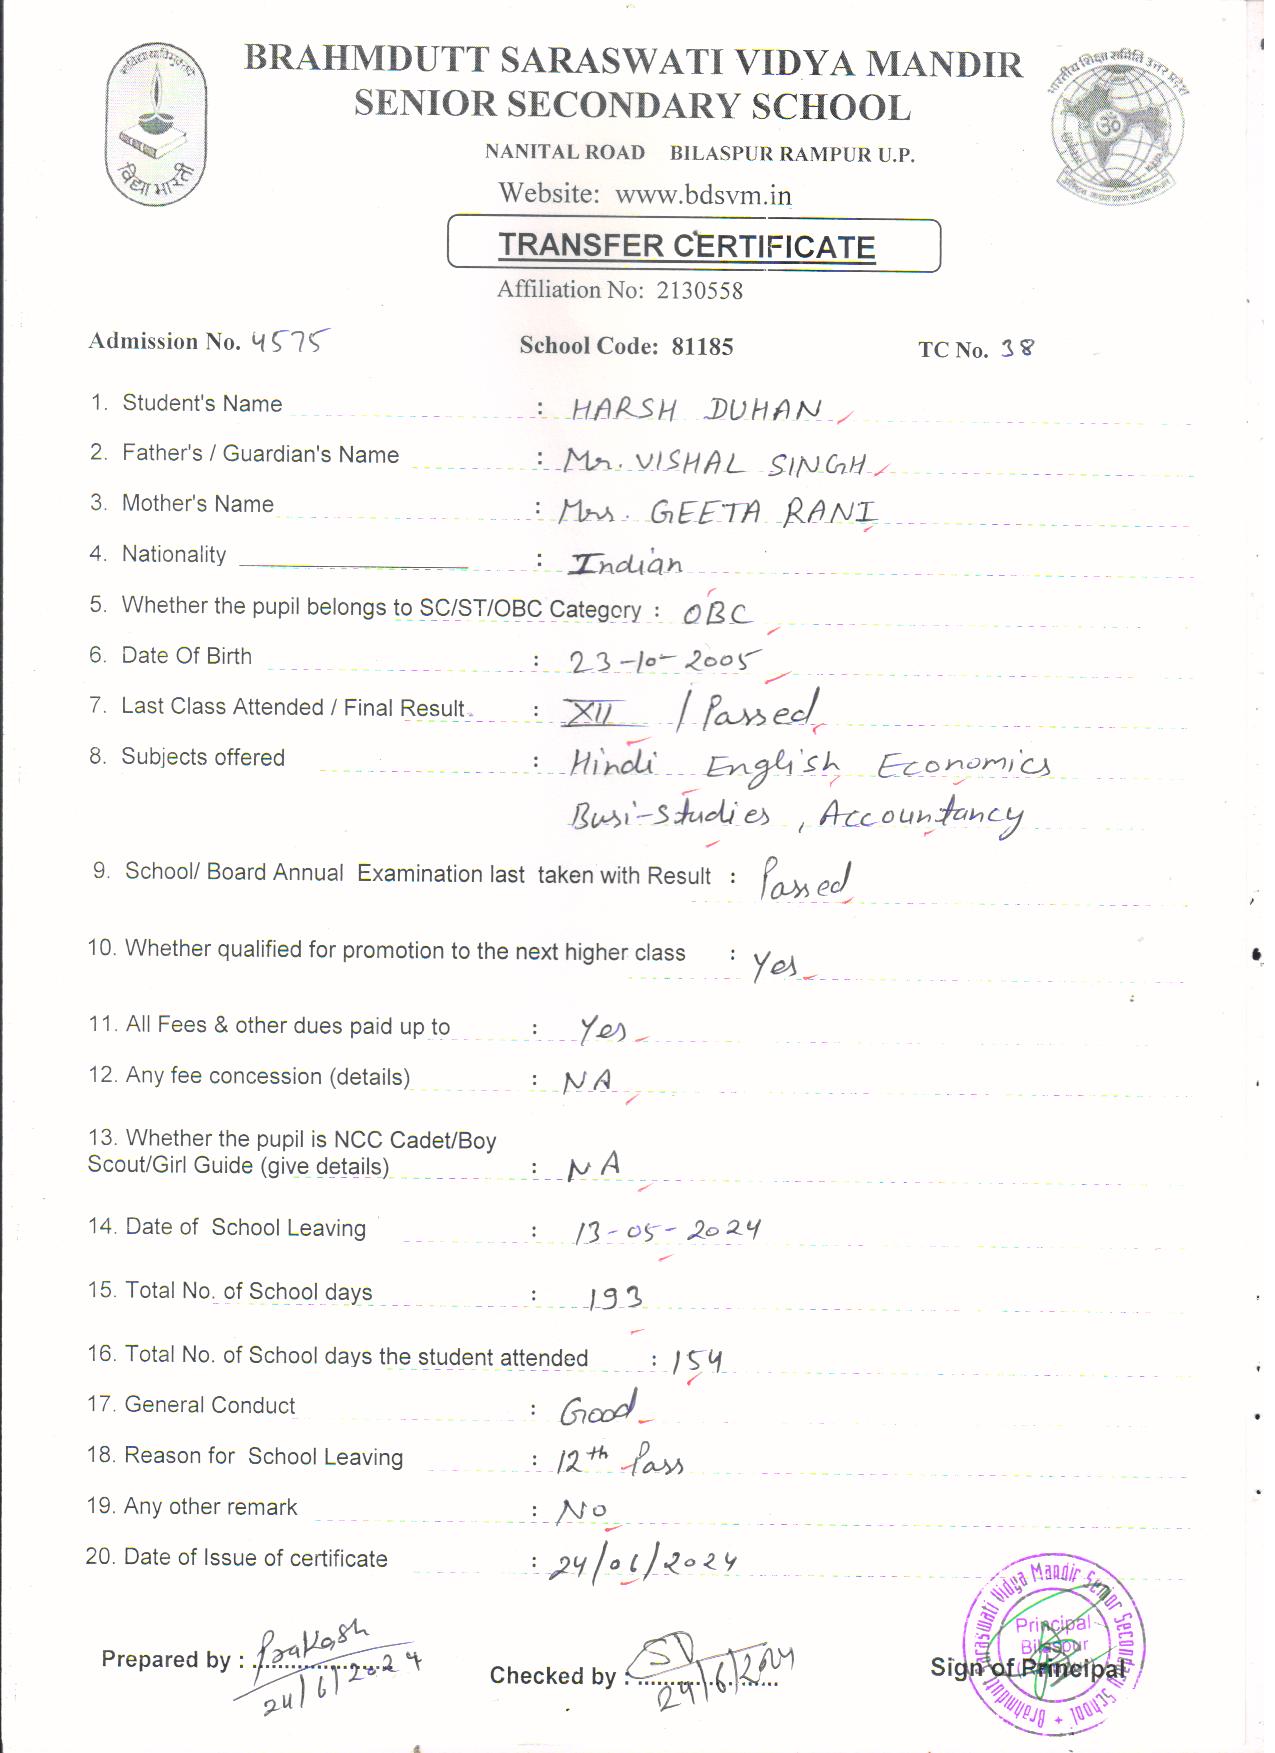 BRAHMDUTT SARASWATI VIDYA MANDIR
SENIOR SECONDARY SCHOOL
NANITAL ROAD BILASPUR RAMPUR U.P.
Website: www.bdsvm.in
विद्या भारती
भारतीय शिक्षा समिति उत्तर प्रदेश
TRANSFER CERTIFICATE
Affiliation No: 2130558
Admission No. 4575 School Code: 81185 TC No. 38
1. Student's Name : HARSH DUHAN
2. Father's / Guardian's Name : Mr. VISHAL SINGH
3. Mother's Name : Mrs. GEETA RANI
4. Nationality : Indian
5. Whether the pupil belongs to SC/ST/OBC Category : OBC
6. Date Of Birth : 23-10-2005
7. Last Class Attended / Final Result : XII / Passed
8. Subjects offered : Hindi English Economics
Busi-Studies, Accountancy
9. School/ Board Annual Examination last taken with Result : Passed
10. Whether qualified for promotion to the next higher class : Yes
11. All Fees & other dues paid up to : Yes
12. Any fee concession (details) : NA
13. Whether the pupil is NCC Cadet/Boy
Scout/Girl Guide (give details) : NA
14. Date of School Leaving : 13-05-2024
15. Total No. of School days : 193
16. Total No. of School days the student attended : 154
17. General Conduct : Good
18. Reason for School Leaving : 12th Pass
19. Any other remark : No
20. Date of Issue of certificate : 24/06/2024
Prepared by : Prakash
24/6/2024
Checked by :
24/6/2024
Sign of Principal
Brahmdutt Saraswati Vidya Mandir Senior Secondary School
Principal
Bilaspur